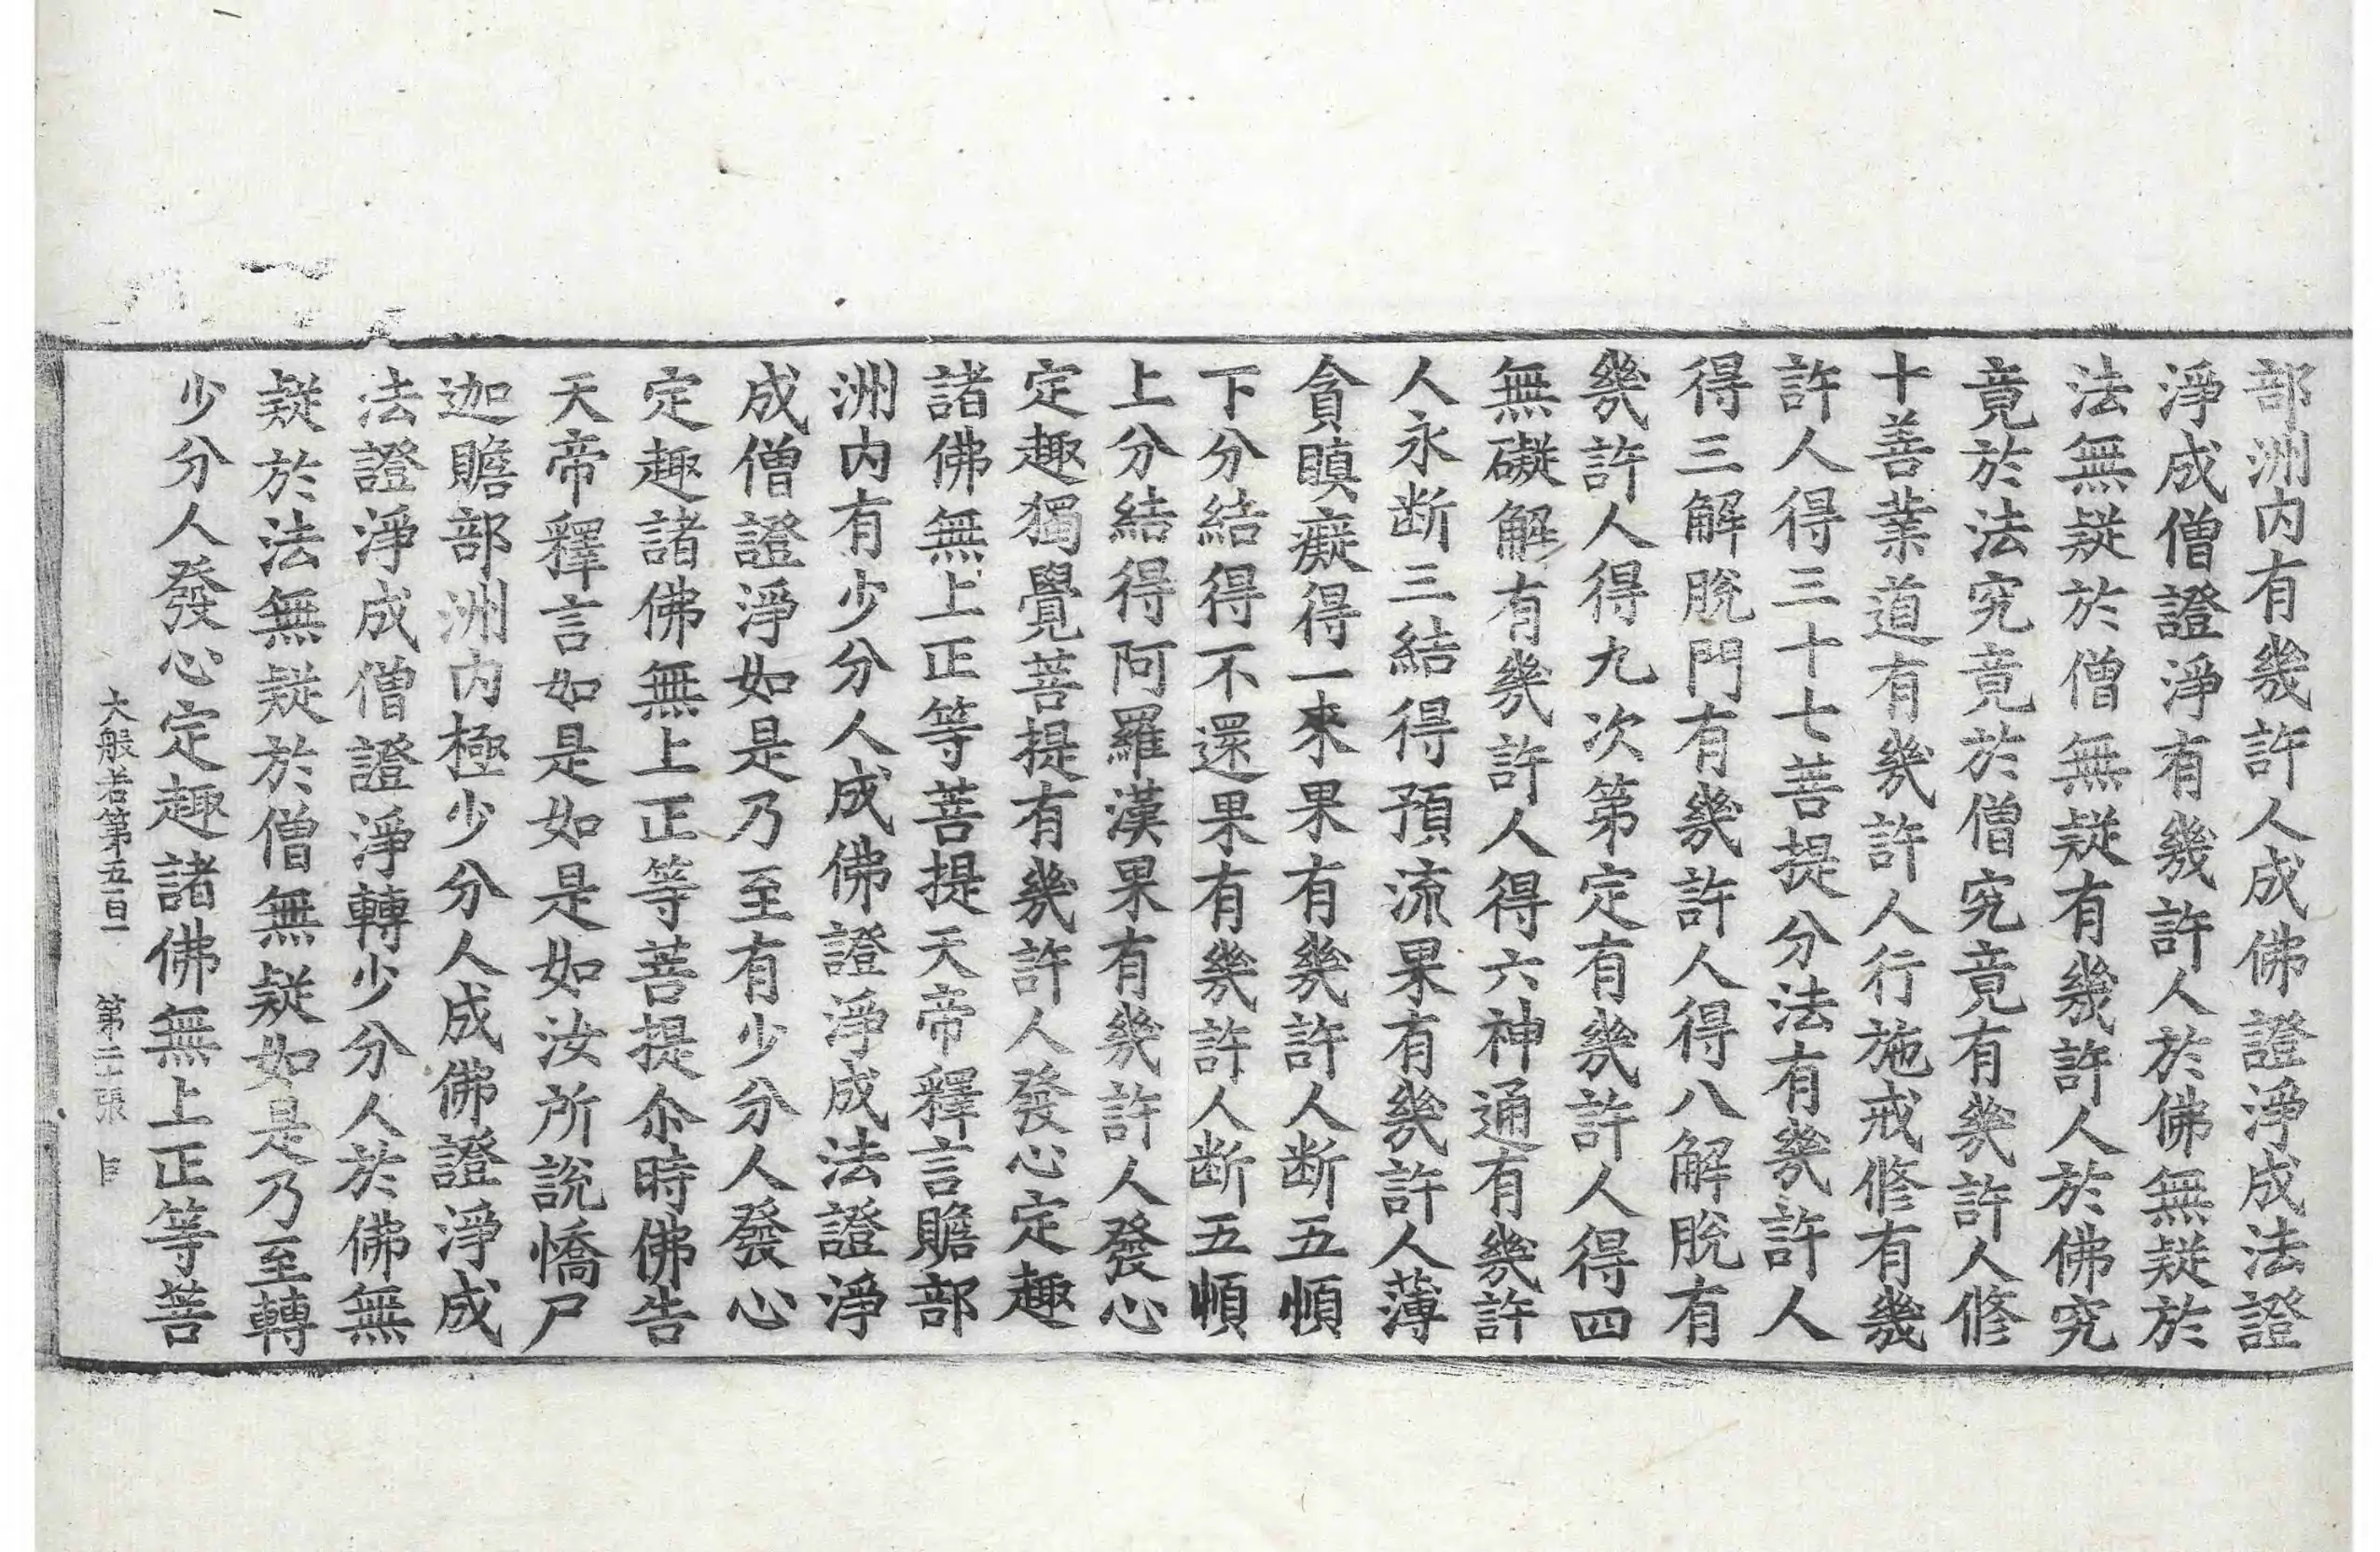 部洲内有幾許人成佛證淨成法證
淨成僧證淨有幾許人於佛無疑於
法無疑於僧無疑有幾許人於佛究
竟於法究竟於僧究竟有幾許人修
十善業道有幾許人行施戒修有幾
許人得三十七菩提分法有幾許人
得三解脫門有幾許人得八解脫有
幾許人得九次第定有幾許人得四
無礙解有幾許人得六神通有幾許
人永断三結得預流果有幾許人薄
貪瞋癡得一來果有幾許人断五順
下分結得不還果有幾許人断五順
上分結得阿羅漢果有幾許人發心
定趣獨覺菩提有幾許人發心定趣
諸佛無上正等菩提天帝釋言贍部
洲内有少分人成佛證淨成法證淨
成僧證淨如是乃至有少分人發心
定趣諸佛無上正等菩提尒時佛告
天帝釋言如是如是如汝所說憍尸
迦贍部洲内極少分人成佛證淨成
法證淨成僧證淨轉少分人於佛無
疑於法無疑於僧無疑如是乃至轉
少分人發心定趣諸佛無上正等菩
大般若第五百一 第二十張